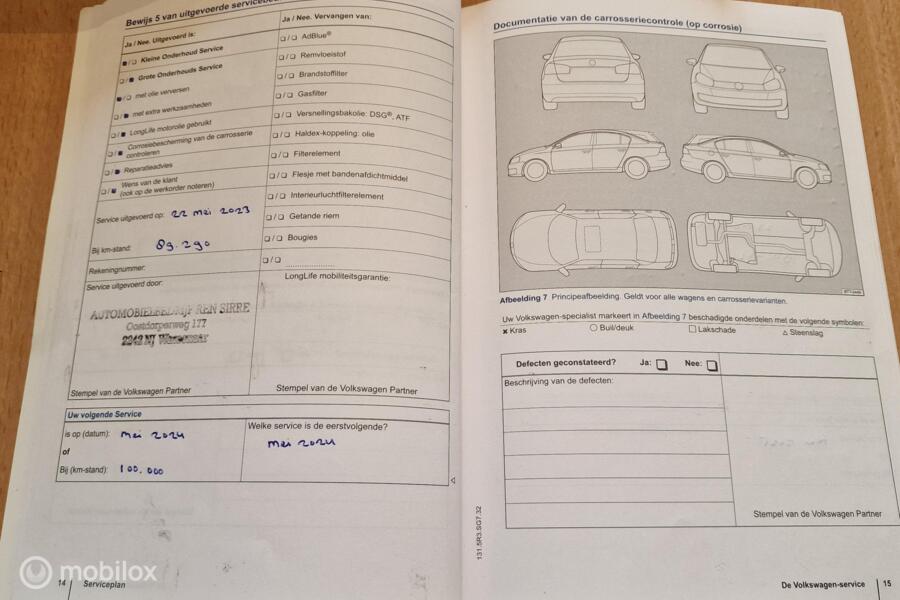 Bewijs 5 van uitgevoerde
Ja / Nee. Uitgevoerd is:
Kleine Onderhoud Service
Grote Onderhouds Service
met olie verversen
met extra werkzaamheden
LongLife motorolie gebruikt
Corrosiebescherming van de carrosserie
controleren
Reparatieadvies
Wens van de klant
(ook op de werkorder noteren)
Service uitgevoerd op: 22 mei 2023
Bij km-stand: 89.290
Rekeningnummer:
Service uitgevoerd door:
AUTOMOBIELBEDRIJF REN SIRRE
Oostdorperweg 177
2242 NJ Wassenaar
Stempel van de Volkswagen Partner
Ja / Nee. Vervangen van:
AdBlue®
Remvloeistof
Brandstoffilter
Gasfilter
Versnellingsbakolie: DSG®, ATF
Haldex-koppeling: olie
Filterelement
Flesje met bandenafdichtmiddel
Interieurluchtfilterelement
Getande riem
Bougies
LongLife mobiliteitsgarantie:
Stempel van de Volkswagen Partner
Uw volgende Service
is op (datum): mei 2024
of
Bij (km-stand): 100.000
Welke service is de eerstvolgende?
mei 2024
14 Serviceplan
mobilox
Documentatie van de carrosseriecontrole (op corrosie)
Afbeelding 7 Principeafbeelding. Geldt voor alle wagens en carrosserievarianten.
Uw Volkswagen-specialist markeert in Afbeelding 7 beschadigde onderdelen met de volgende symbolen:
× Kras ○ Buil/deuk □ Lakschade △ Steenslag
Defecten geconstateerd? Ja: Nee:
Beschrijving van de defecten:
Stempel van de Volkswagen Partner
131.5R3.SG7.32
De Volkswagen-service 15